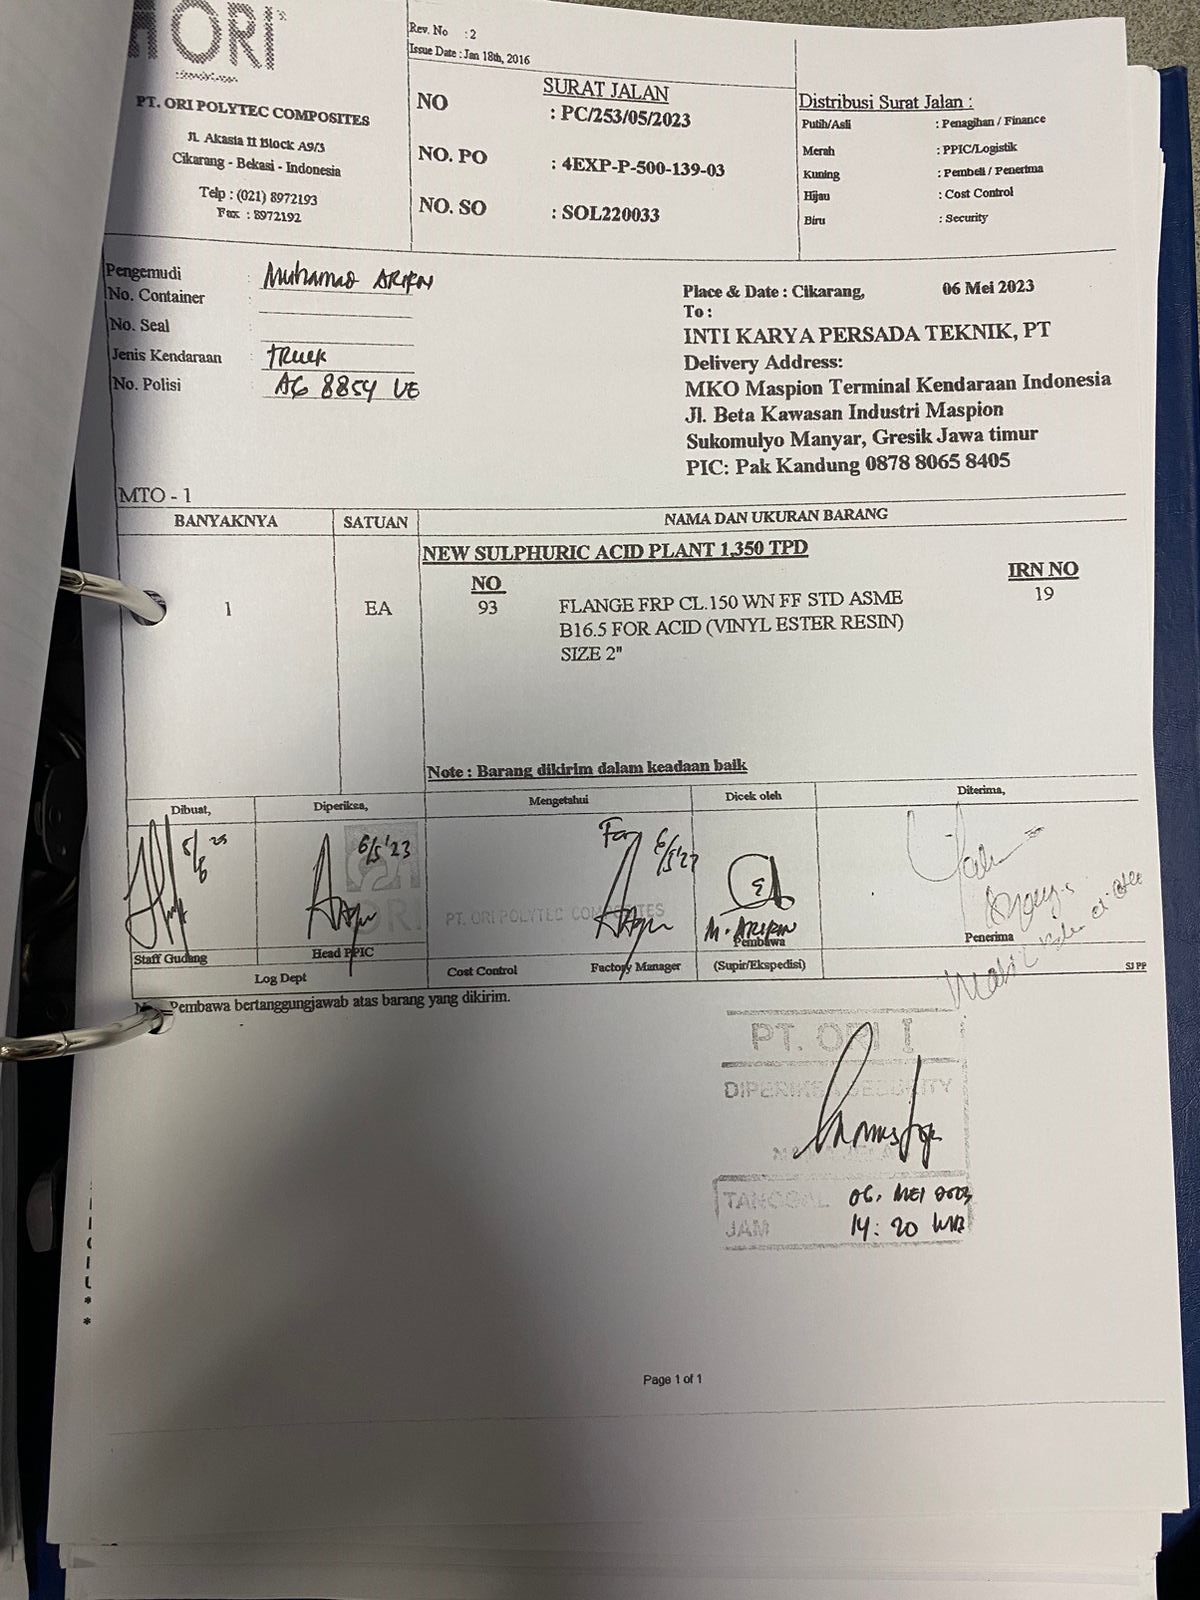 ORI
PT. ORI POLYTEC COMPOSITES
Jl. Akasia II Block A9/3
Cikarang - Bekasi - Indonesia
Telp : (021) 8972193
Fax : 8972192
Rev. No : 2
Issue Date : Jan 18th, 2016
SURAT JALAN
NO : PC/253/05/2023
NO. PO : 4EXP-P-500-139-03
NO. SO : SOL220033
Distribusi Surat Jalan :
Putih/Asli : Penagihan / Finance
Merah : PPIC/Logistik
Kuning : Pembeli / Penerima
Hijau : Cost Control
Biru : Security
Pengemudi : Muhamad ARIFIN
No. Container :
No. Seal :
Jenis Kendaraan : truck
No. Polisi : AG 8854 UE
Place & Date : Cikarang, 06 Mei 2023
To :
INTI KARYA PERSADA TEKNIK, PT
Delivery Address:
MKO Maspion Terminal Kendaraan Indonesia
Jl. Beta Kawasan Industri Maspion
Sukomulyo Manyar, Gresik Jawa timur
PIC: Pak Kandung 0878 8065 8405
MTO - 1
BANYAKNYA SATUAN NAMA DAN UKURAN BARANG
NEW SULPHURIC ACID PLANT 1,350 TPD
NO IRN NO
1 EA 93 FLANGE FRP CL.150 WN FF STD ASME 19
B16.5 FOR ACID (VINYL ESTER RESIN)
SIZE 2"
Note : Barang dikirim dalam keadaan baik
Dibuat, Diperiksa, Mengetahui Dicek oleh Diterima,
6/5'23
For
ORI
PT. ORI POLYTEC COMPOSITES
M. ARIFIN
Staff Gudang Head PPIC Pembawa Penerima
Log Dept Cost Control Factory Manager (Supir/Ekspedisi)
SJ PP
Pembawa bertanggungjawab atas barang yang dikirim.
PT. ORI I
DIPERIKSA SECURITY
TANGGAL 06. MEI 2023
JAM 14:20 WIB
Page 1 of 1